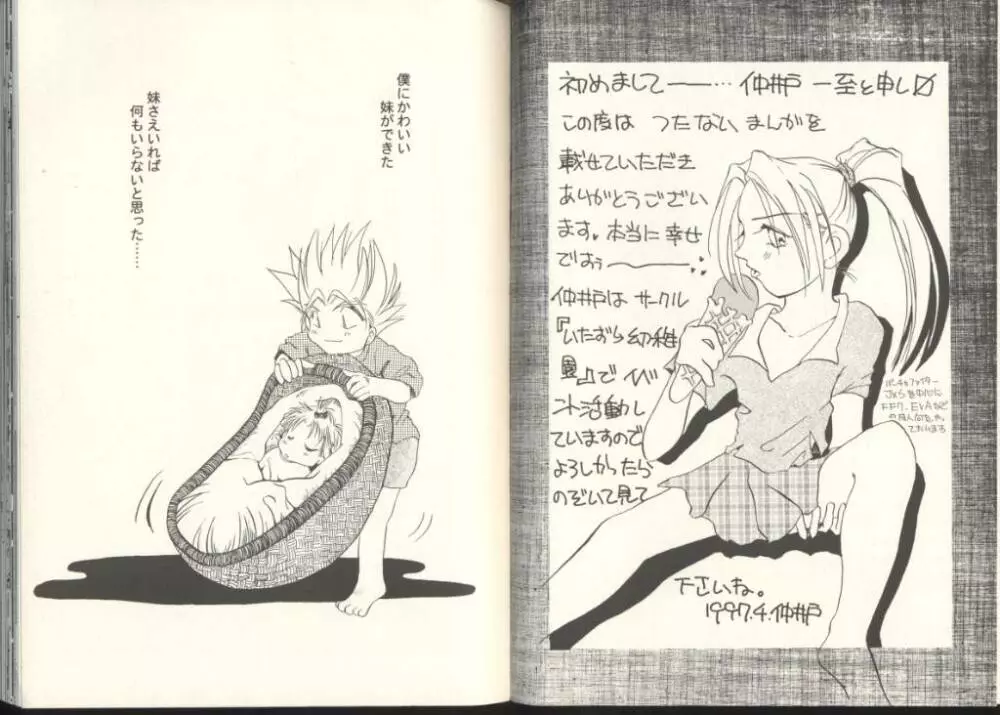 僕にかわいい
妹ができた
妹さえいれば
何もいらないと思った……
初めまして――…仲井戸 一至と申し〼
この度は つたない、まんがを
載せていただき
ありがとうござい
ます。本当に幸せ
でほぅ――
仲井戸は サークル
『いたずら幼稚
園』で イベ
ント活動し
ていますので
よろしかったら
のぞいて見て
下さいね。
1997.4.仲井戸
バーチャファイター
FF7、EVAなど